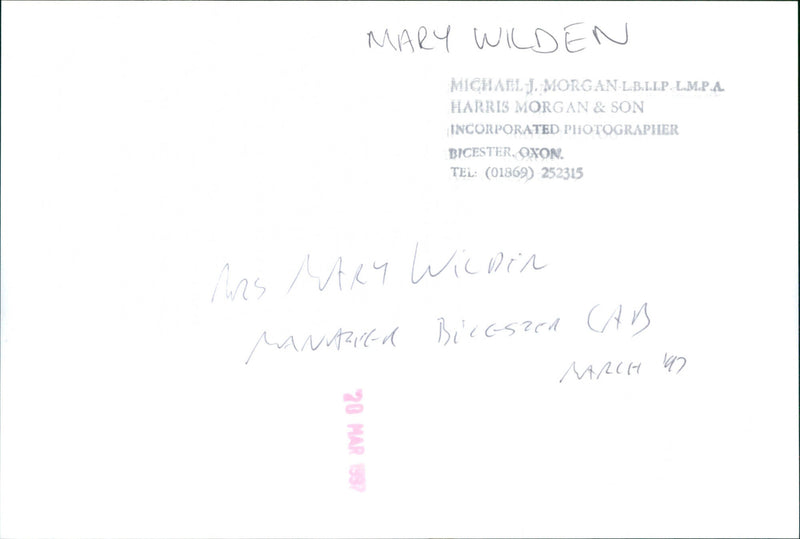 MARY WILDEN
MICHAEL J. MORGAN L.B.I.P.P. L.M.P.A.
HARRIS MORGAN & SON
INCORPORATED PHOTOGRAPHER
BICESTER, OXON.
TEL: (01869) 252315
MRS MARY WILDEN
MANAGER BICESTER CAB
MARCH '97
20 MAR 1997